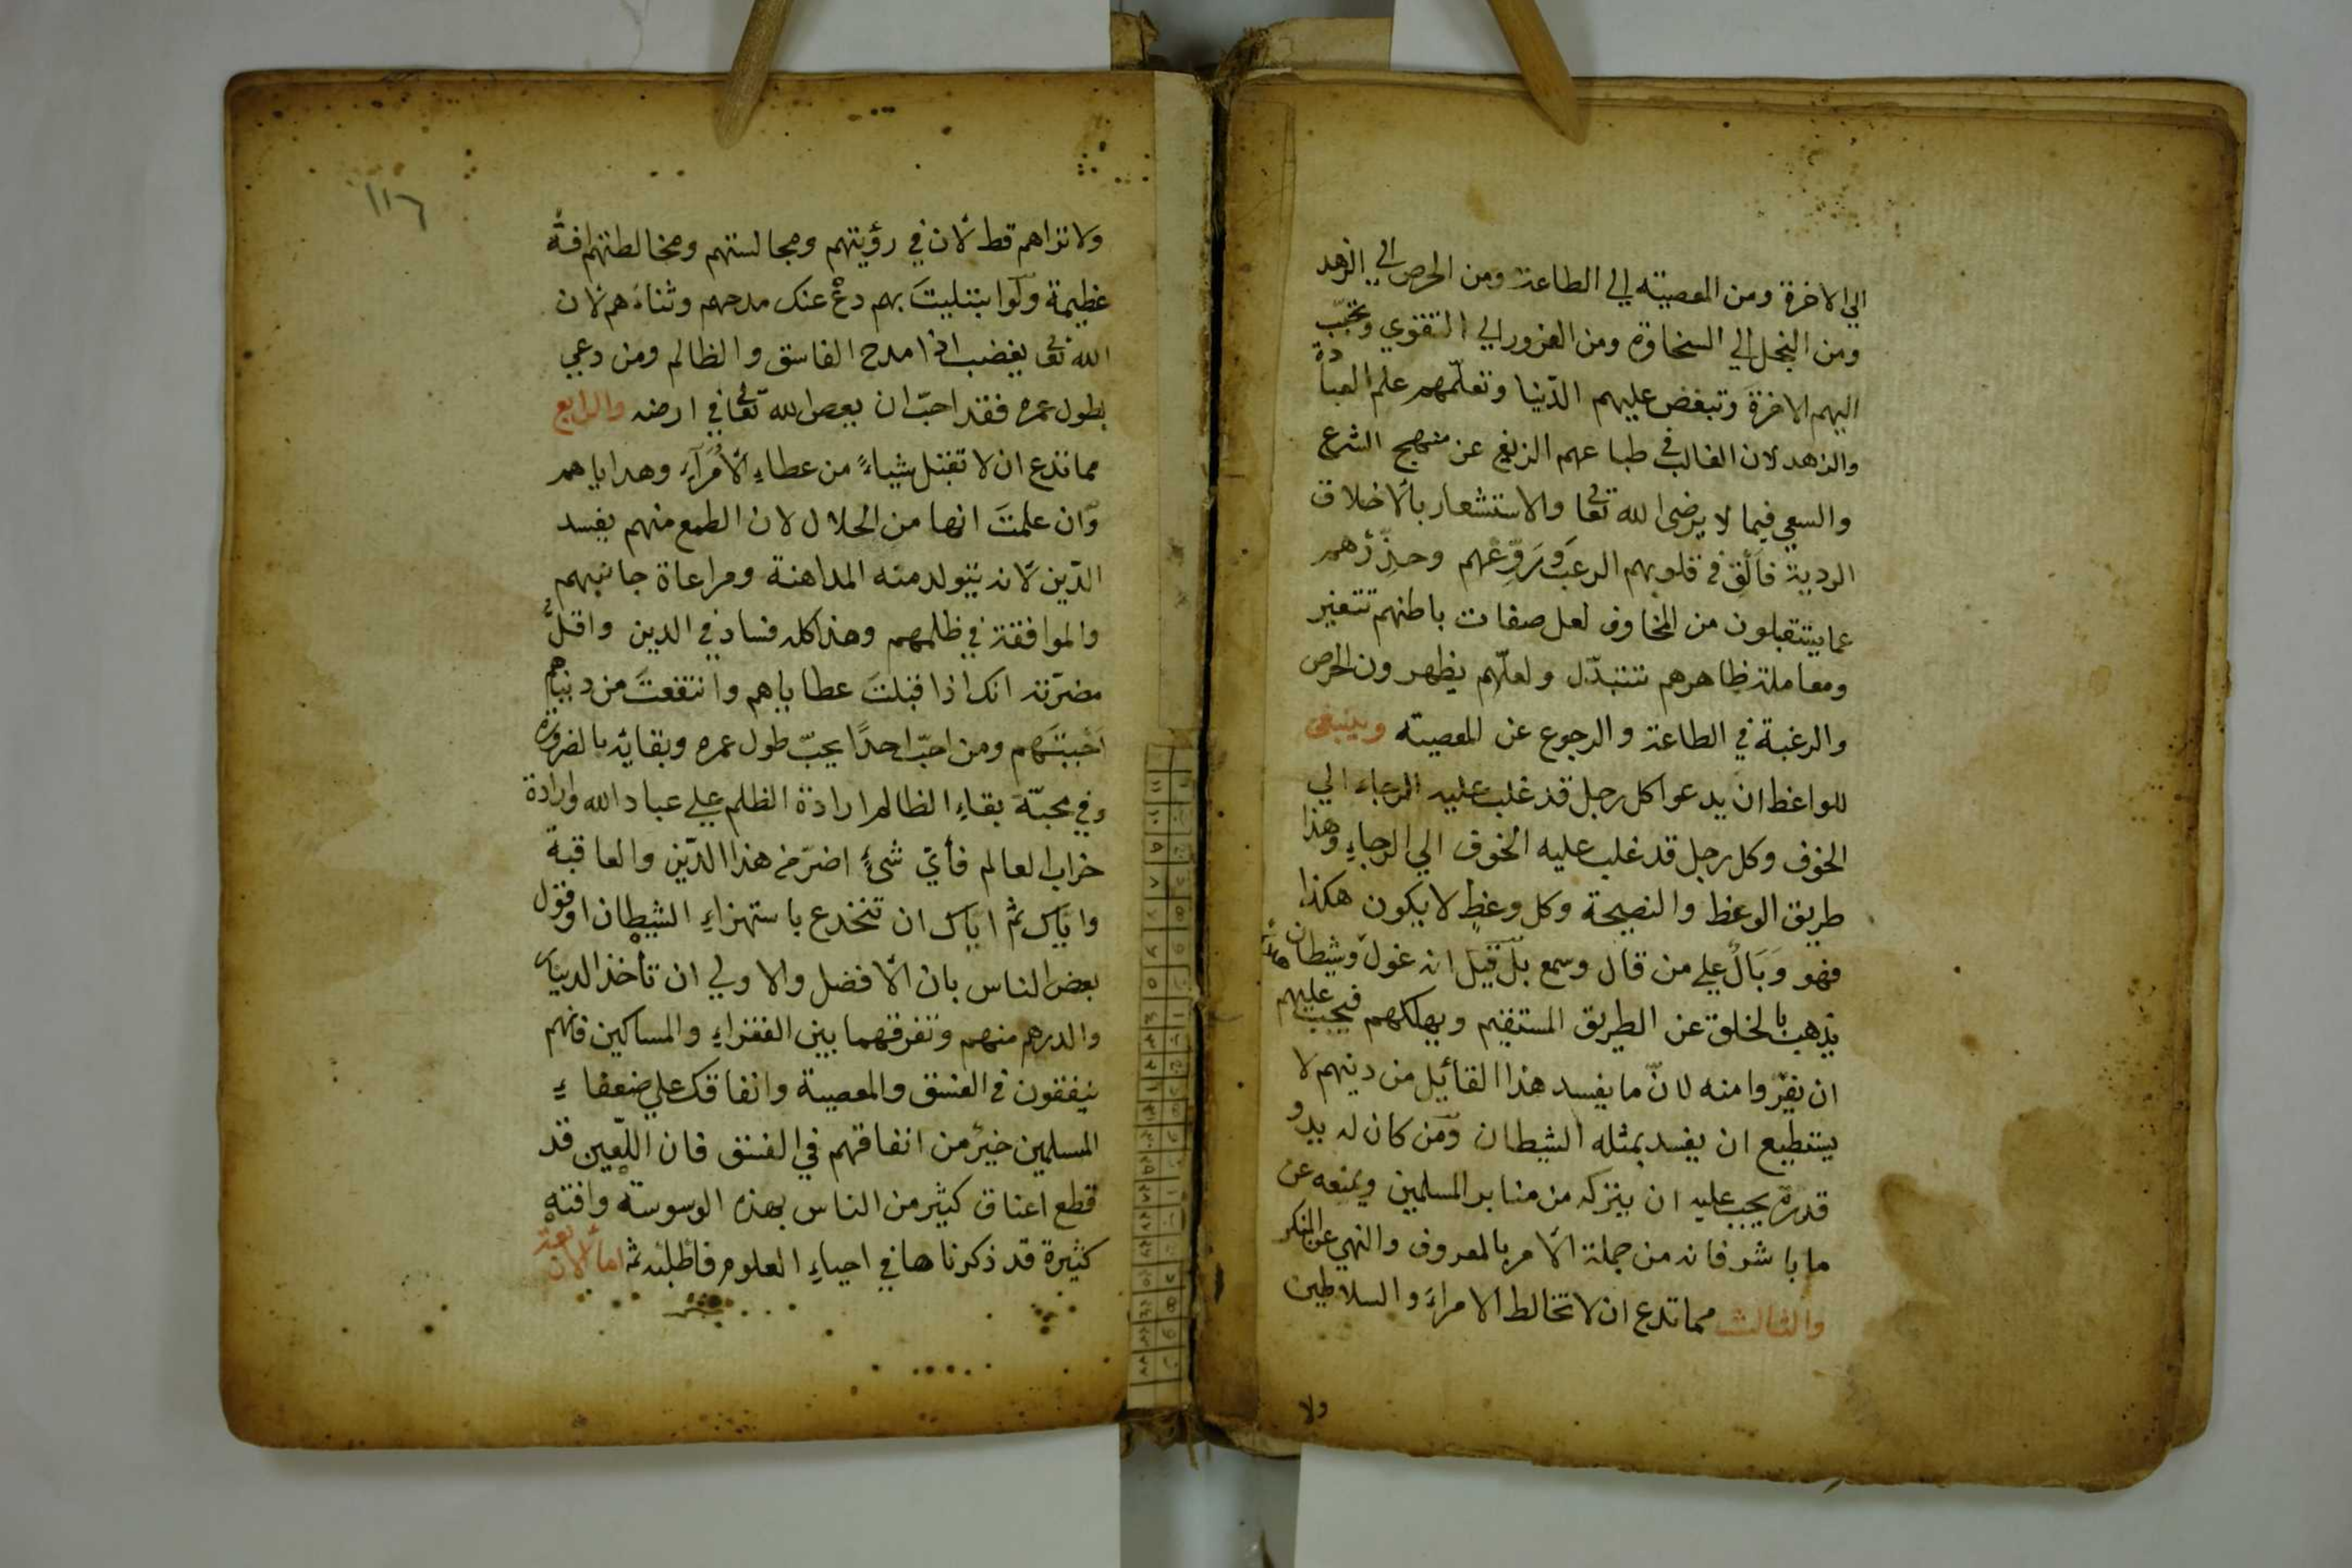 الي الاخرة ومن المعصية الي الطاعة ومن الحرص الي الزهد
ومن البخل الي السخاوة ومن الغرور الي التقوي وتحبّب
اليهم الاخرةَ وتبغض عليهم الدّنيا وتعلّمهم علم العبادة
والزهد لان الغالب في طباعهم الزيغ عن منهج الشرع
والسعي فيما لا يرضى الله تعا والاستشعار بالاخلاق
الردية فاَلْقِ في قلوبهم الرعبَ ورَوِّعْهم وحذِّرْهم
عما يستقبلون من المخاوف لعل صفات باطنهم تتغير
ومعاملة ظاهرهم تتبدّل ولعلّهم يظهرون الحرص
والرغبة في الطاعة والرجوع عن المعصية وينبغى
للواعظ ان يدعوا كل رجل قد غلب عليه الرجاء الي
الخوف وكل رجل قد غلب عليه الخوف الي الرجاءِ وهذا
طريق الوعظ والنصيحة وكل وعظٍ لا يكون هكذا
فهو وَبَالٌ علي من قال وسمع بل قيل انه غول وشيطان
يذهب بالخلق عن الطريق المستقيم ويهلكهم فيجب عليهم
ان يفرّوا منه لانّ ما يفسد هذا القائيل من دينهم لا
يستطيع ان يفسد بمثله الشيطان ومن كان له يد و
قدرة يجب عليه ان ينزله من منابر المسلمين ويمنعه عن
ما باشر فانه من جملة الامر بالمعروف والنهي عن المنكر
والثالث مما تدع ان لا تخالط الامراءَ والسلاطين
ولا
١١٦
ولا تراهم قط لان في رؤيتهم ومجالستهم ومخالطتهم افةً
عظيمة ولو ابتليتَ بهم دعْ عنك مدحهم وثناءَهم لان
الله تعا يغضب اذا مدح الفاسق والظالم ومن دعي
بطول عمره فقد احبّ ان يعص الله تعا في ارضه والرابع
مما تدع ان لا تقبل شياءً من عطاءِ الاُمَرَآءِ وهداياهم
وان علمتَ انها من الحلال لان الطمع منهم يفسد
الدّين لانه يتولد منه المداهنة ومراعاة جانبهم
والموافقة في ظلمهم وهذا كله فساد في الدين واقلُّ
مضرّته انك اذا قبلتَ عطاياهم وانتفعتَ من دنياهم
احببتَهم ومن احبّ احدًا يحبّ طول عمره وبقائه بالضرورة
وفي محبّة بقاءِ الظالم ارادة الظلم علي عباد الله وارادة
خراب العالم فأيّ شئٍ اضرّ من هذا الدّين والعاقبة
واياك ثم اياك ان تنخدع باستهزاءِ الشيطان او قول
بعض الناس بان الافضل والاولي ان تأخذ الدينار
والدرهم منهم وتفرقهما بين الفقراءِ والمساكين فانهم
ينفقون في الفسق والمعصية وانفاقك علي ضعفاءِ
المسلمين خيرٌ من انفاقهم في الفسق فان اللّعين قد
قطع اعناق كثير من الناس بهذه الوسوسة وافته
كثيرة قد ذكرناها في احياءِ العلوم فاطلبه ثمه اما الاربعة